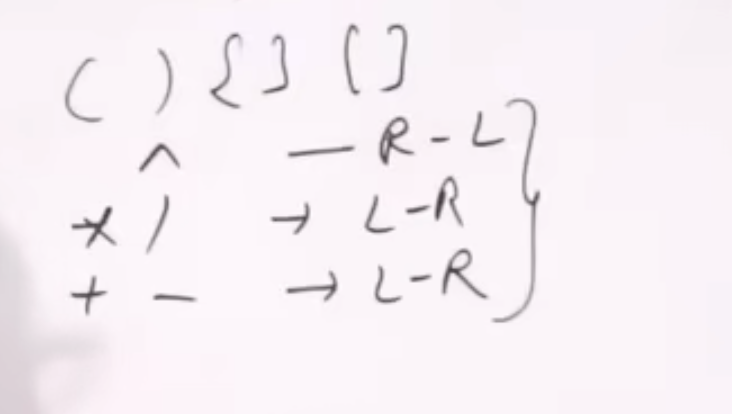 ( ) { } [ ]
^ — R - L
* / → L - R
+ - → L - R